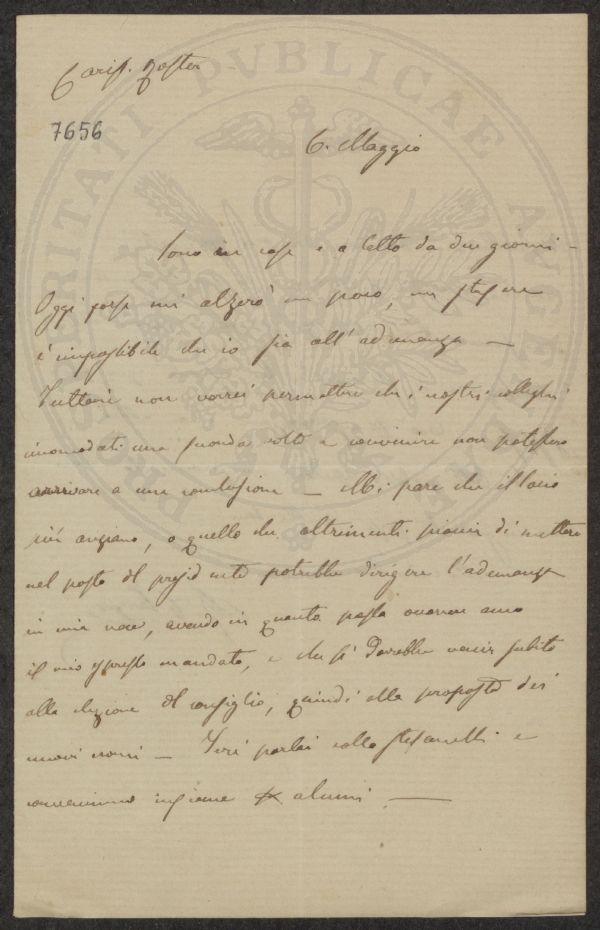 Cariss. Roster
7656
6. Maggio
Sono in casa e a letto da due giorni -
Oggi forse mi alzerò un poco, ma
è impossibile che io sia all'adunanza —
Tuttavia non vorrei permettere che i nostri colleghi
incomodati una seconda volta a convenire non potessero
arrivare a una conclusione — Mi pare che il socio
più anziano, o quello che altrimenti di mettere
nel posto del presidente potrebbe dirigere l'adunanza
in mia vece, avendo in quanto possa
il mio espresso mandato, e che si dovrebbe venir subito
alla elezione del consiglio, quindi alla proposta dei
nuovi nomi — Ieri parlai collo Stefanelli e
convenimmo insieme alcuni —
PVBLICAE